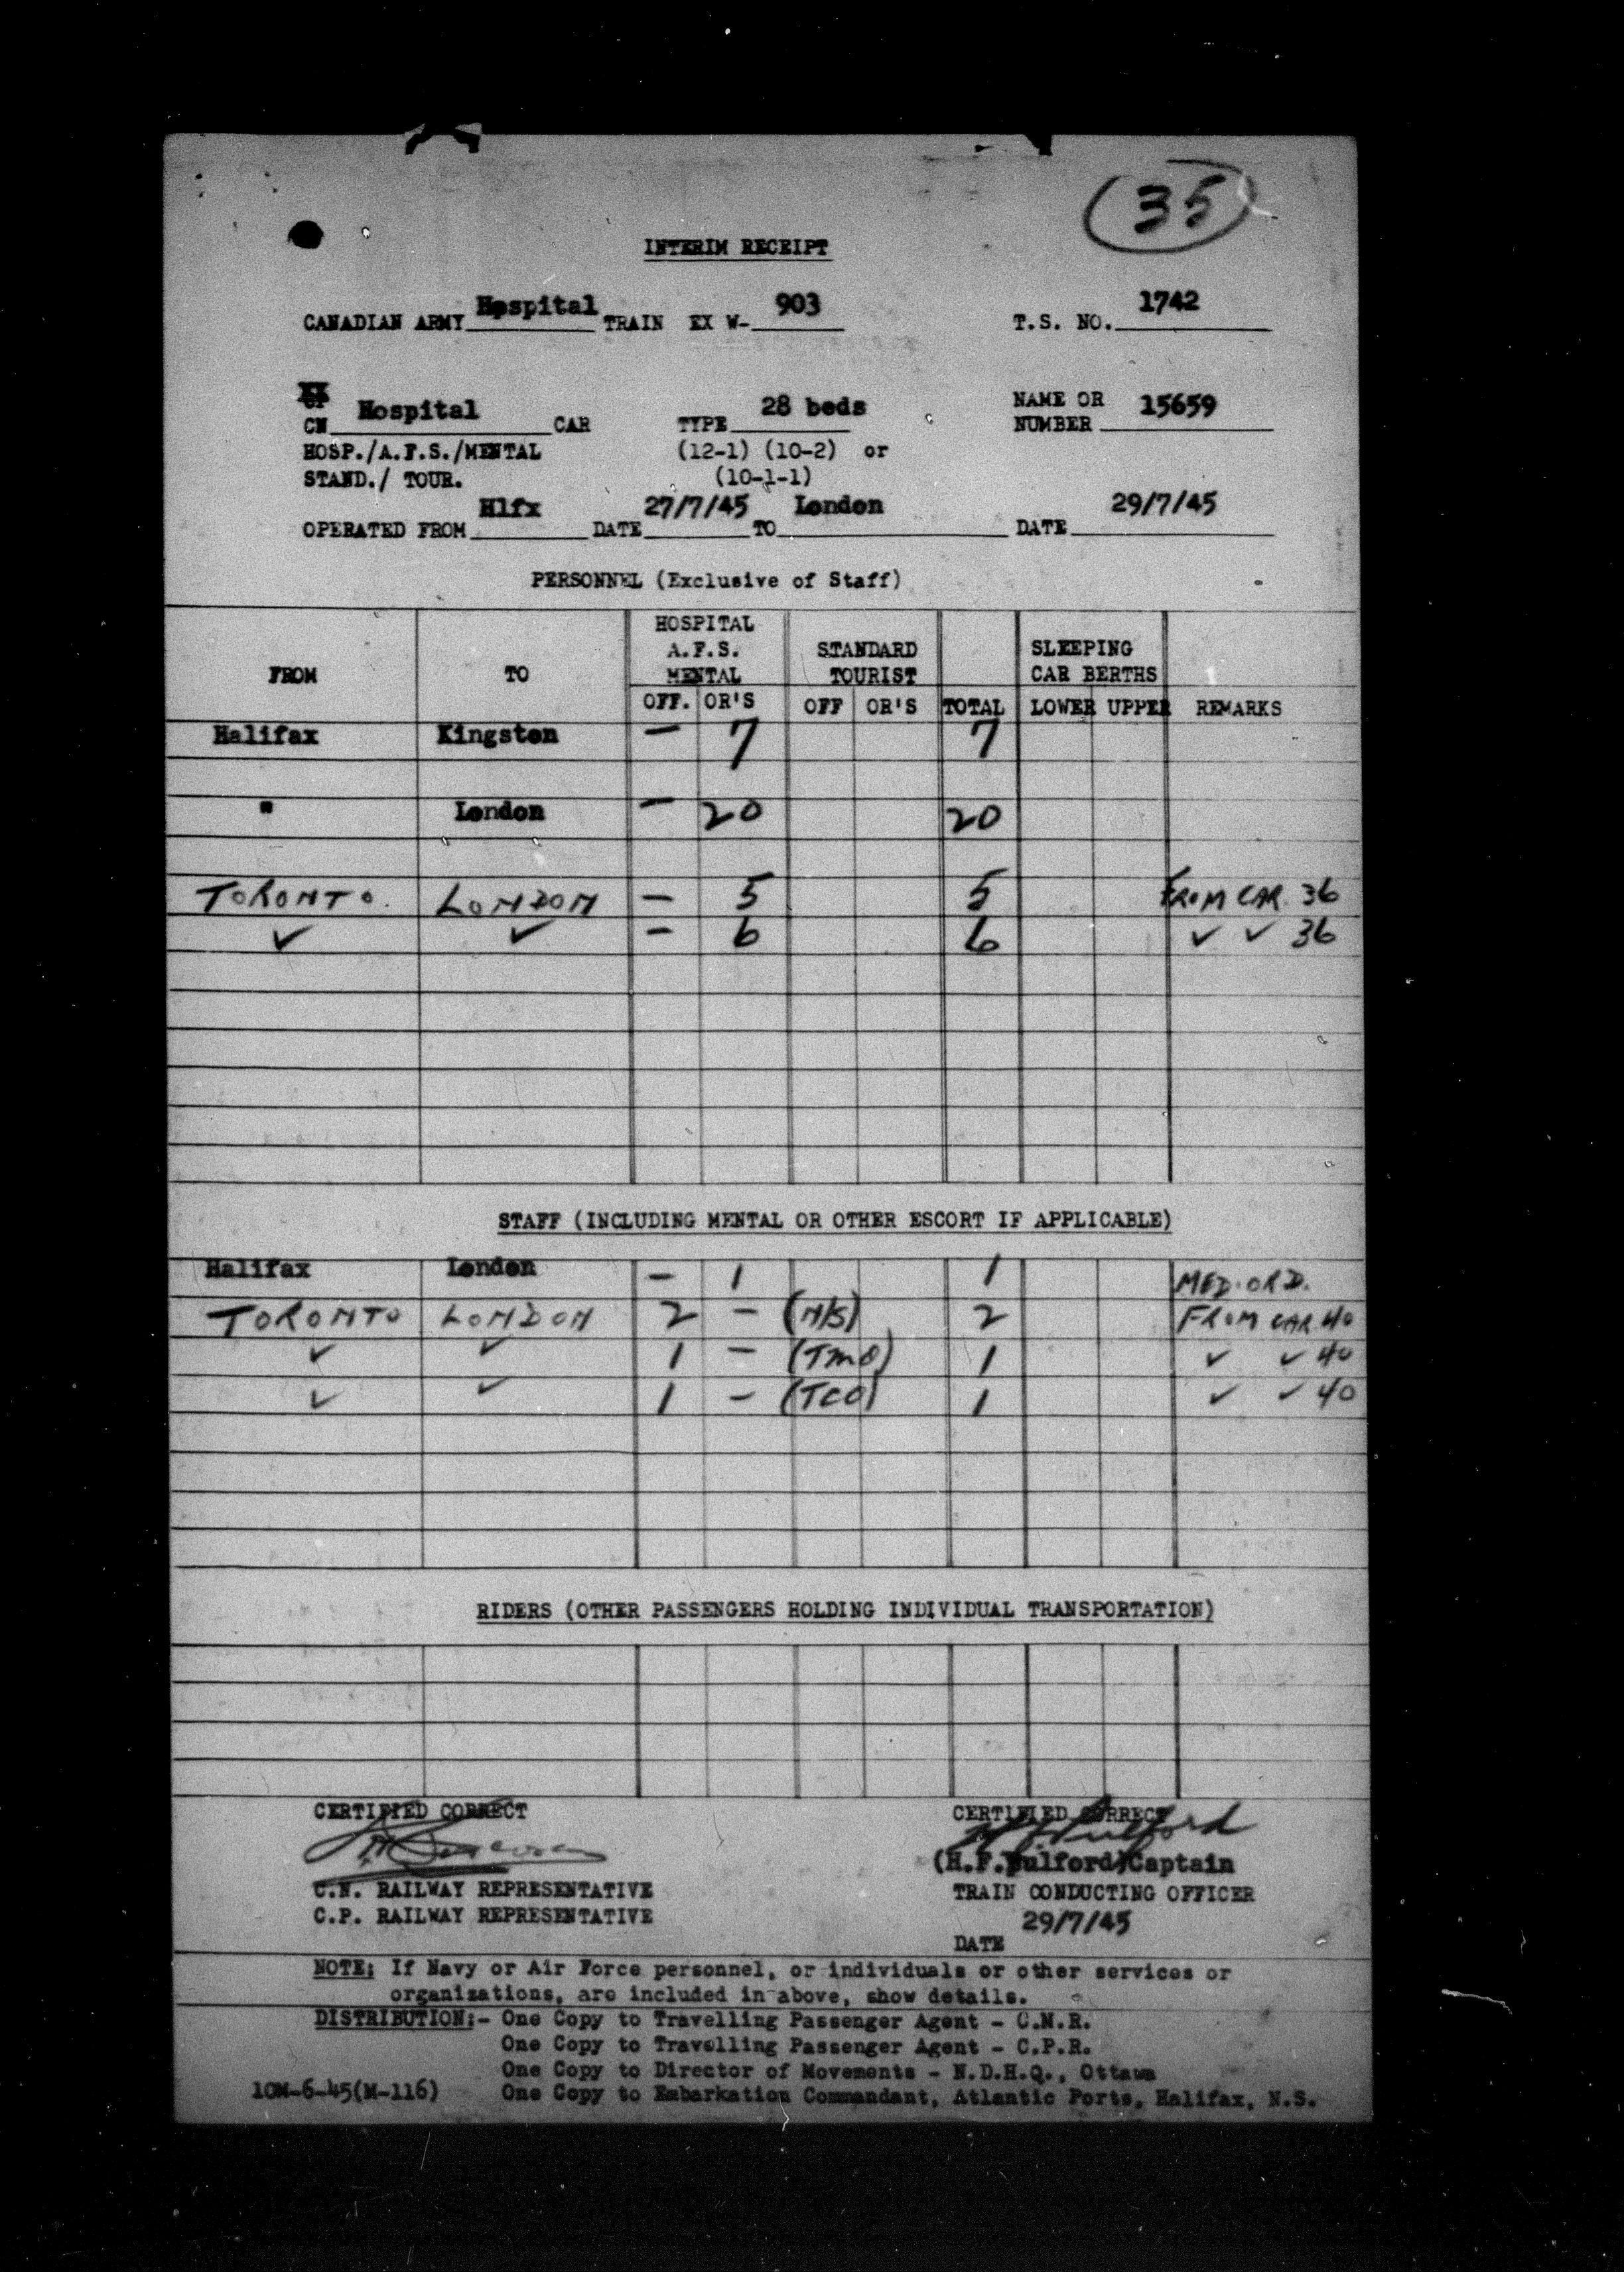 35
INTERIM RECEIPT
CANADIAN ARMY Hospital TRAIN EX W- 903 T.S. NO. 1742
CP
CN Hospital CAR TYPE 28 beds NAME OR NUMBER 15659
HOSP./A.F.S./MENTAL (12-1) (10-2) or
STAND./ TOUR. (10-1-1)
OPERATED FROM Hlfx DATE 27/7/45 TO London DATE 29/7/45
PERSONNEL (Exclusive of Staff)
FROM TO HOSPITAL A.F.S. MENTAL STANDARD TOURIST SLEEPING CAR BERTHS
OFF. OR'S OFF OR'S TOTAL LOWER UPPER REMARKS
Halifax Kingston — 7 7
" London — 20 20
TORONTO. LONDON — 5 5 FROM CAR 36
✓ ✓ — 6 6 ✓ ✓ 36
STAFF (INCLUDING MENTAL OR OTHER ESCORT IF APPLICABLE)
Halifax London — 1 1 MED. ORD.
TORONTO LONDON 2 — (N/S) 2 FROM CAR 40
✓ ✓ 1 — (TMO) 1 ✓ ✓ 40
✓ ✓ 1 — (TCO) 1 ✓ ✓ 40
RIDERS (OTHER PASSENGERS HOLDING INDIVIDUAL TRANSPORTATION)
CERTIFIED CORRECT CERTIFIED CORRECT
(H.F.Pulford)Captain
C.N. RAILWAY REPRESENTATIVE TRAIN CONDUCTING OFFICER
C.P. RAILWAY REPRESENTATIVE 29/7/45
DATE
NOTE: If Navy or Air Force personnel, or individuals or other services or
organizations, are included in above, show details.
DISTRIBUTION:- One Copy to Travelling Passenger Agent - C.N.R.
One Copy to Travelling Passenger Agent - C.P.R.
One Copy to Director of Movements - N.D.H.Q., Ottawa
10M-6-45(M-116) One Copy to Embarkation Commandant, Atlantic Ports, Halifax, N.S.